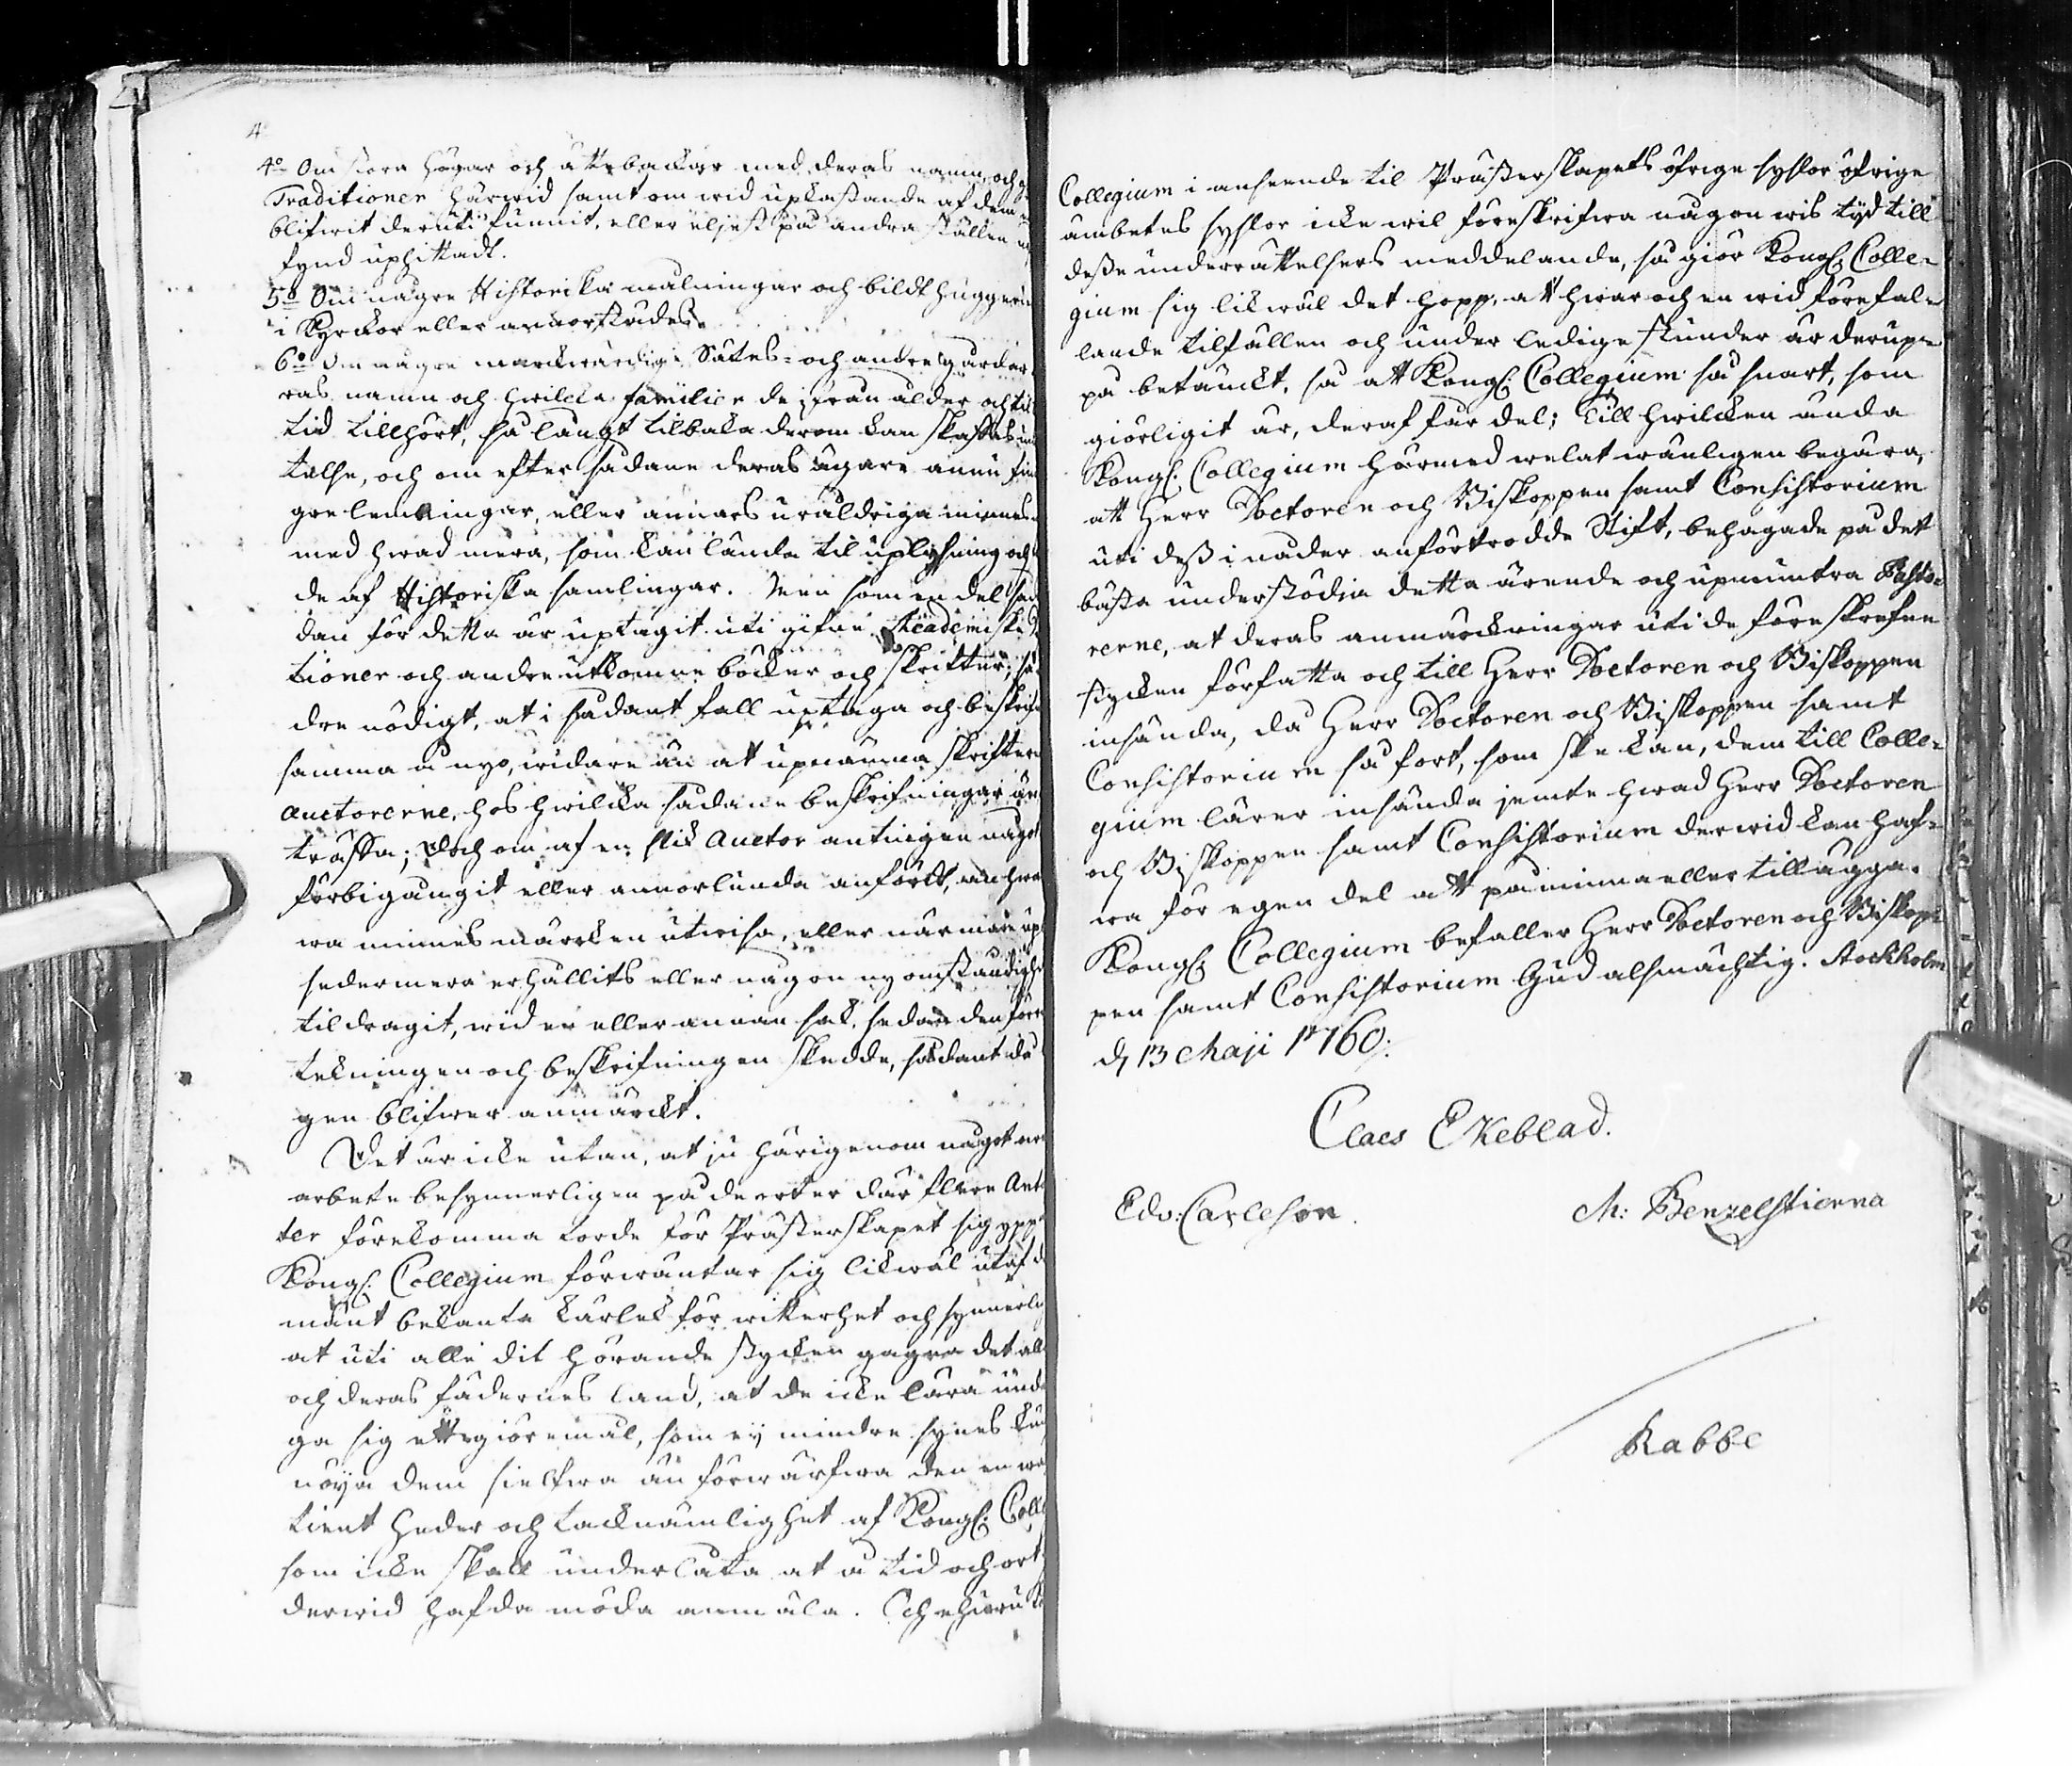 4
4o Om stora högar och ättebackar med deras namn, och
Traditioner härwid samt om wid upkastande af dem
blifwit deruti funnit, eller eljest på andra ställen
fynd uphittadt.
5o Om någre Historiska målningar och bildthuggerie
i Kyrckor eller annorstädes.
6o Om någre märckwärdige Sätes- och andre gårdar
ras namn och hwilcka familier de ifrån ålder och til
tid tillhört, så långt tilbaka derom kan skaffas un
telse, och om efter sådane deras ägare ännu fin
gre lemningar, eller annars uråldriga minnes
med hwad mera, som kan lända til uplysning och
de af Historiska samlingar. Men som en del
dan för detta är uptagit uti gifne Academiske
tioner och andre utkomne böcker och skrifter; så
dre nödigt, at i sådant fall uptaga och beskrif
samma å nyo, widare än at upnämna skrifter
auctorerne, hos hwilcka sådane beskrifningar äre
träffa; Doch om af en slik Auctor antingen någ
förbigångit eller annorlunda anfördt, än hwa
wa minnesmärcken utwisa, eller närmare up
sedermera erhållits eller någon ny omständighe
tildragit, wid en eller annan sak, sedan den före
tekningen och beskrifningen skedde, sådant då
gen blifwer anmärckt.
Det är icke utan, at ju härigenom något
arbete besynnerligen på de orter där flere Ant
ter förekomma torde för Prästerskapet sig yppa
Kongl. Collegium förwäntar sig likwäl utaf d
mänt bekanta kärlek för witterhet och synnerlig
at uti alle dit hörande stycken gagna det all
och deras fädernes land, at de icke lära und
ga sig ett giöremål, som ey mindre synes kun
nöya dem sielfwa än förwärfwa den en
tient heder och tacknämlighet af Kongl. Colle
som icke skall underlåta at å tid och ort
derwid hafda möda anmäla. Och ehuru K
Collegium i anseende til Prästerskapets öfrige sysslor öfrige
ämbetes sysslor icke wil föreskrifwa någon wis tyd till
desse underrättelsers meddelande, så giör Kongl. Colle-
gium sig likwäl det hopp, att hwar och en wid förefal-
lande tilfällen och under ledige stunder är derup-
på betänckt, så att Kongl. Collegium så snart, som
giörligit är, deraf får del; Till hwilcken ända
Kongl. Collegium härmed welat wänligen begära,
att Herr Doctoren och Biskoppen samt Consistorium
uti dess i nåder anförtrodde Stift, behagade på det
bästa understödja detta ärende och upmuntra Pasto-
rerne, at deras anmärckningar uti de föreskrefne
stycken författa och till Herr Doctoren och Biskoppen
insända, då Herr Doctoren och Biskoppen samt
Consistorium så fort, som ske kan, dem till Colle-
gium lärer insända jemte hwad Herr Doctoren
och Biskoppen samt Consistorium derwid kan haf-
wa för egen del att påminna eller tillägga.
Kongl. Collegium befaller Herr Doctoren och Biskop-
pen samt Consistorium Gud alsmächtig. Stockholm
d. 13 Maji 1760.
Claes Ekeblad.
Edv: Carleson.
M: Benzelstierna
Rabbe